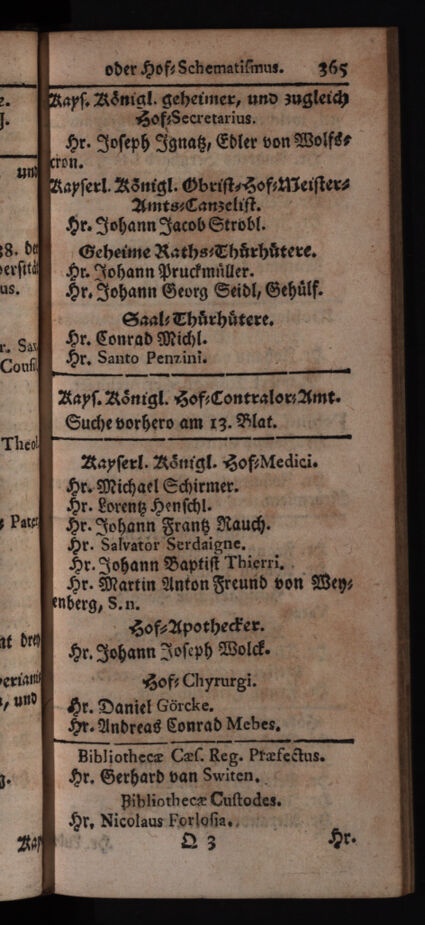 oder Hof-Schematismus. 365
Kays. Königl. geheimer, und zugleich
Hof-Secretarius.
Hr. Joseph Ignatz, Edler von Wolfs-
cron.
Kayserl. Königl. Obrist-Hof-Meister-
Amts-Canzelist.
Hr. Johann Jacob Strobl.
Geheime Raths-Thürhütere.
Hr. Johann Pruckmüller.
Hr. Johann Georg Seidl, Gehülf.
Saal-Thürhütere.
Hr. Conrad Michl.
Hr. Santo Penzini.
Kays. Königl. Hof-Contralor-Amt.
Suche vorhero am 13. Blat.
Kayserl. Königl. Hof-Medici.
Hr. Michael Schirmer.
Hr. Lorentz Henschl.
Hr. Johann Frantz Rauch.
Hr. Salvator Serdaigne.
Hr. Johann Baptist Thierri.
Hr. Martin Anton Freund von Wey-
enberg, S.n.
Hof-Apothecker.
Hr. Johann Joseph Wolck.
Hof-Chyrurgi.
Hr. Daniel Görcke.
Hr. Andreas Conrad Mebes.
Bibliothecæ Cæs. Reg. Præfectus.
Hr. Gerhard van Switen.
Bibliothecæ Custodes.
Hr. Nicolaus Forlosia.
Q 3 Hr.